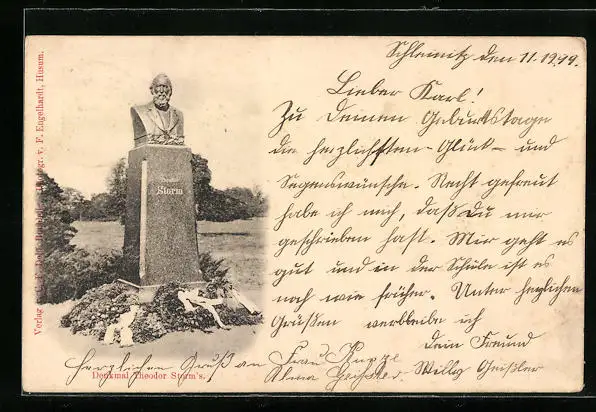 Schleinitz den 11.19.99.
Lieber Karl!
Zu Deinem Geburtstage
die herzlichsten Glück- und
Segenswünsche. Recht gefreut
habe ich mich, daß Du mir
geschrieben hast. Mir geht es
gut und in der Schule ist es
noch wie früher. Unter herzlichen
Grüßen verbleibe ich
Dein Freund
Willy Geißler
Herzlichen Gruß an Frau
Alma Geißler.
Denkmal Theodor Storm's.
Storm
Verlag Photogr. v. F. Engelhardt, Husum.